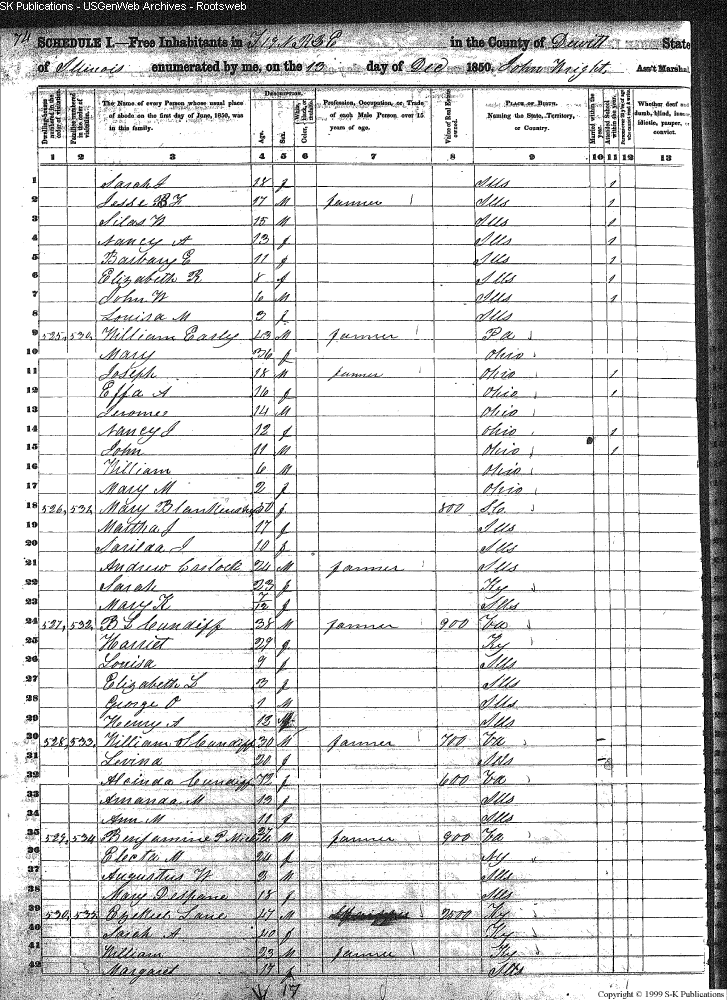 SK Publications - USGenWeb Archives - Rootsweb
74 SCHEDULE I.—Free Inhabitants in T19 N R3 E in the County of Dewitt State
of Illinois enumerated by me, on the 13 day of Dec 1850. John Wright, Ass't Marshal
Dwelling-houses numbered in the order of visitation. Families numbered in the order of visitation. The Name of every Person whose usual place of abode on the first day of June, 1850, was in this family. DESCRIPTION. Age. Sex. White, Color, black, or mulatto. Profession, Occupation, or Trade of each Male Person over 15 years of age. Value of Real Estate owned. PLACE OF BIRTH. Naming the State, Territory, or Country. Married within the year. Attended School within the year. Whether deaf and dumb, blind, insane, idiotic, pauper, or convict.
1 2 3 4 5 6 7 8 9 10 11 12 13
1 Sarah J 18 f Ills 1
2 Jesse B F 17 M farmer Ills 1
3 Silas W 15 M Ills 1
4 Nancy A 13 f Ills 1
5 Barbary E 11 f Ills 1
6 Elizabeth R 8 f Ills 1
7 John W 6 M Ills 1
8 Louisa M 3 f Ills
9 525, 530, William Easly 43 M farmer Pa
10 Mary 36 f Ohio
11 Joseph 18 M farmer Ohio 1
12 Effa A 16 f Ohio 1
13 Jerome 14 M Ohio
14 Nancy J 12 f Ohio 1
15 John 11 M Ohio 1
16 William 6 M Ohio
17 Mary M 2 f Ohio
18 526, 531, Mary Blankenship f 800
19 Martha J 17 f Ills
20 Sarilda J 10 f Ills
21 Andrew Carlock 24 M farmer Ills
22 Sarah 23 f Ky
23 Mary K 7/12 f Ills
24 527, 532, B L Cundiff 38 M farmer 900 Va
25 Harriet 29 f Ky
26 Louisa 9 f Ills
27 Elizabeth L 3 f Ills
28 George O 1 M Ills
29 Henry A 13 M Ills
30 528, 533, William Cundiff 30 M farmer 700 Va
31 Levina 20 f Ills
32 Alcinda Cundiff f 600 Va
33 Amanda M 13 f Ills
34 Ann M 11 f Ills
35 529, 534 Benjamine P M farmer 900 Va
36 Electa M 24 f NY
37 Augustus W 2 M Ills
38 Mary Despane 18 f Ills
39 530, 535 Ezekiel Lane 47 M 2500 Ky
40 Sarah A 40 f Ky
41 William 23 M farmer Ky
42 Margaret 17 f Ills
17
Copyright © 1999 S-K Publications